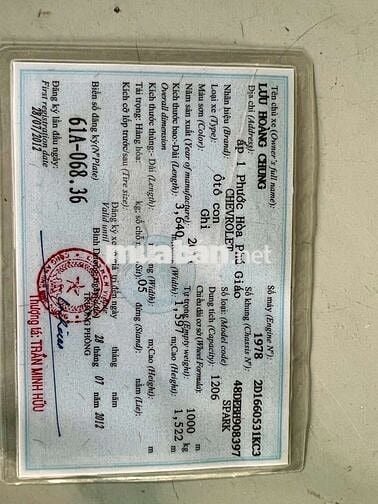 Tên chủ xe (Owner's full name):
LƯU HOÀNG CHUNG
Địa chỉ (Address):
ấp 1 Phước Hòa Phú Giáo
Nhãn hiệu (Brand): CHEVROLET
Số loại (Model code) SPARK
Loại xe (Type): Ôtô con
Dung tích (Capacity): 1206
Màu sơn (Color): Ghi
Công thức bánh xe (Wheel Formula):
Năm sản xuất (Year of manufacture):
Tự trọng (Empty weight): 1000 kg
Kích thước bao - Dài (Length): 3,640 m; Rộng (Width): 1,597 m; Cao (Height): 1,522 m
Overall dimension
Kích thước thùng: - Dài (Length), Rộng (Width): m; Cao (Height): m
Tải trọng: Hàng hóa kg; số chỗ (Sit) 05 đứng (Stand), nằm (Lie):
Kích cỡ lốp trước/sau (Tire size):
Số máy (Engine N°): 2D1660531KC3
Số khung (Chassis N°): 1978
48DEBH908397
Đăng ký xe có giá trị đến ngày tháng năm
Valid until
Biển số đăng ký (N°Plate)
61A-068.36
Đăng ký lần đầu ngày:
First registration date
28/07/2012
Bình Dương, ngày 28 tháng 07 năm 2012
TRƯỞNG PHÒNG
Thượng tá: TRẦN MINH HỮU
muaban.net